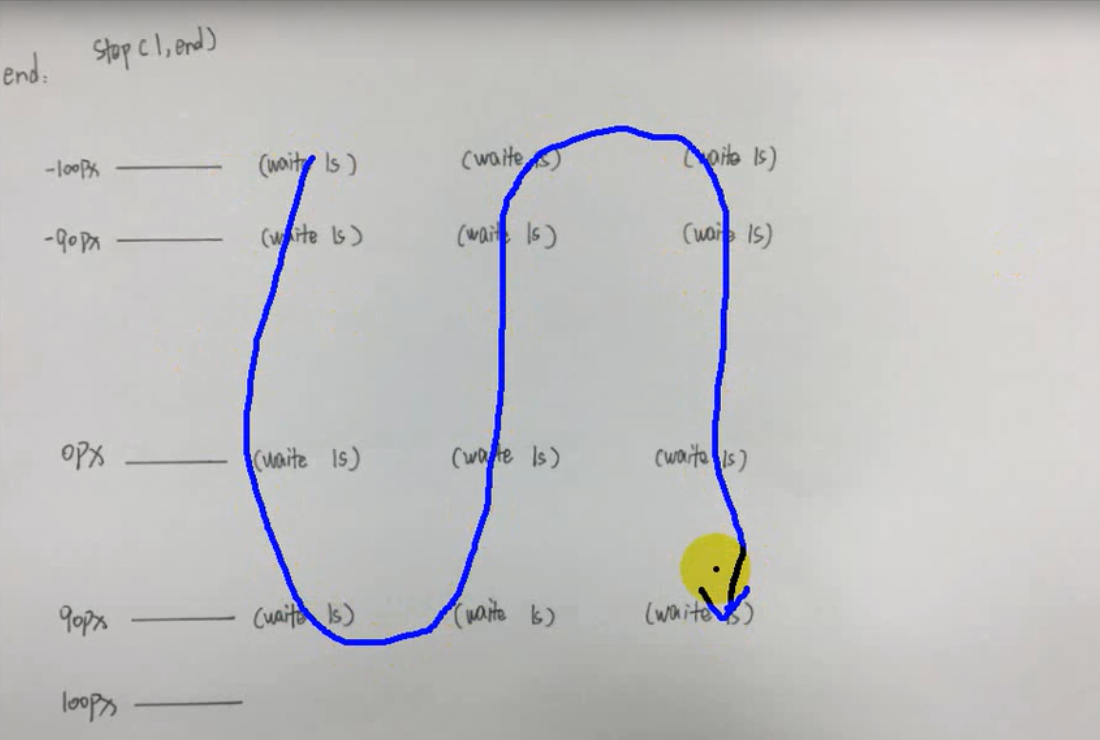 Stop (1, end)
end:
-100px (waite 1s) (waite 1s) (waite 1s)
-90px (waite 1s) (waite 1s) (waite 1s)
0px (waite 1s) (waite 1s) (waite 1s)
90px (waite 1s) (waite 1s) (waite 1s)
100px